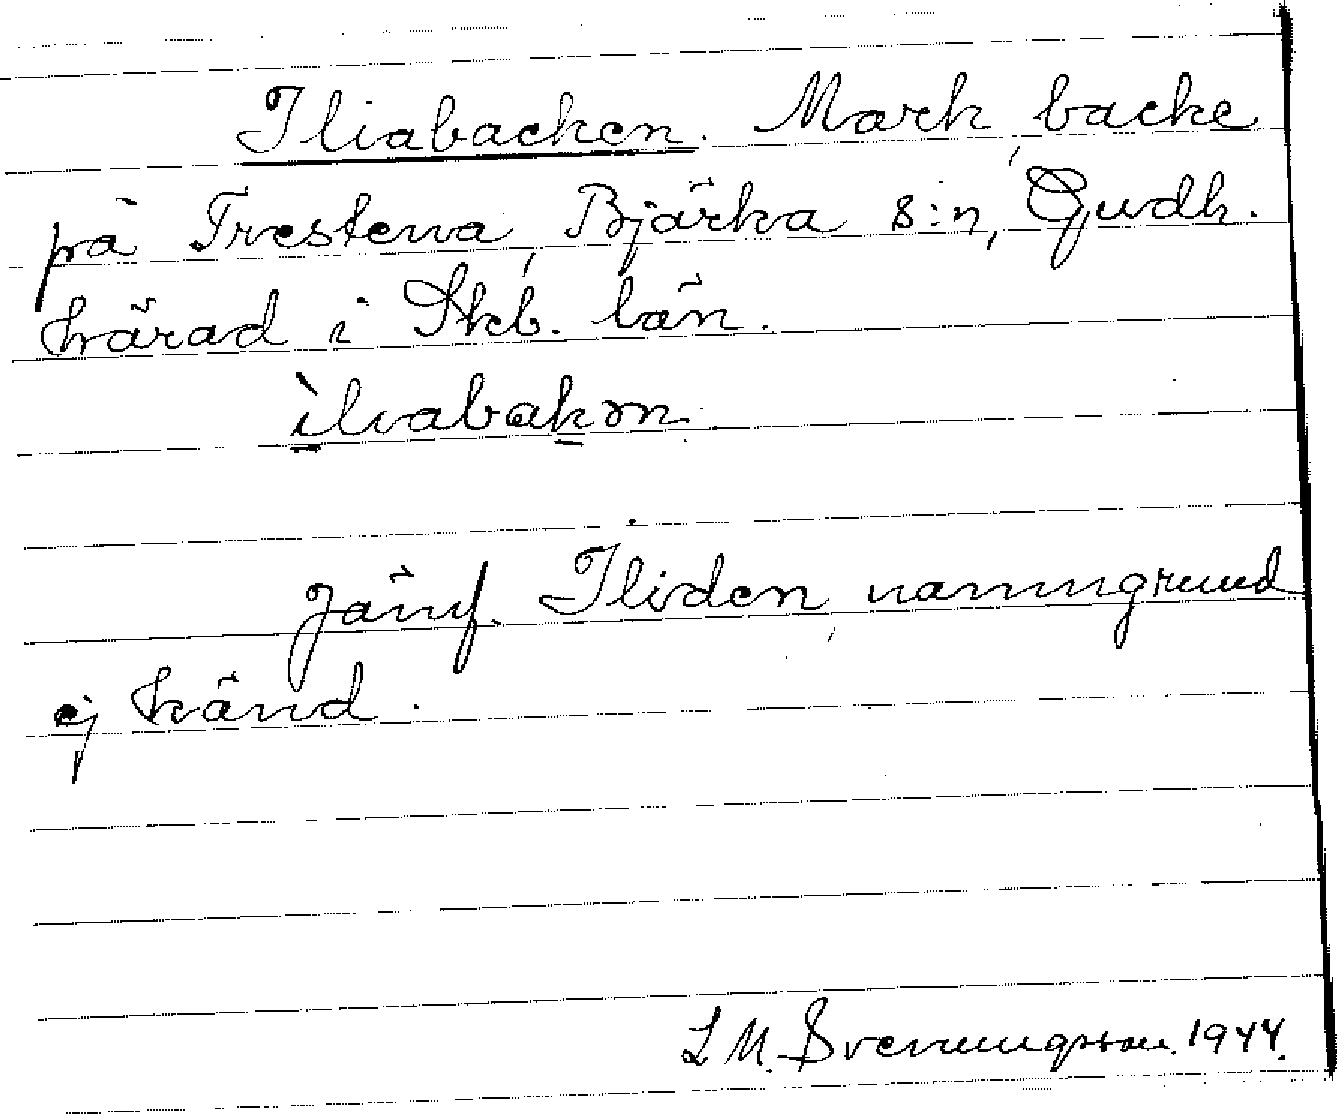 Iliabacken. Mark, backe
på Trestena, Bjärka s:n, Gudh.
härad i Skb. län.
ìliabakon.
Jämf. Iliden, namngrund
ej känd.
L. M. Svenungsson. 1944.